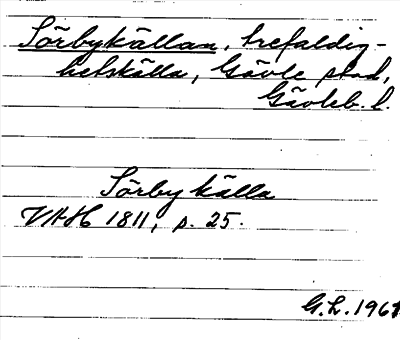 Sörbykällan, trefaldig-
hetskälla, Gävle stad,
Gävleb. l.
Sörby källa
VAH 1811, p. 25.
G.L. 1961